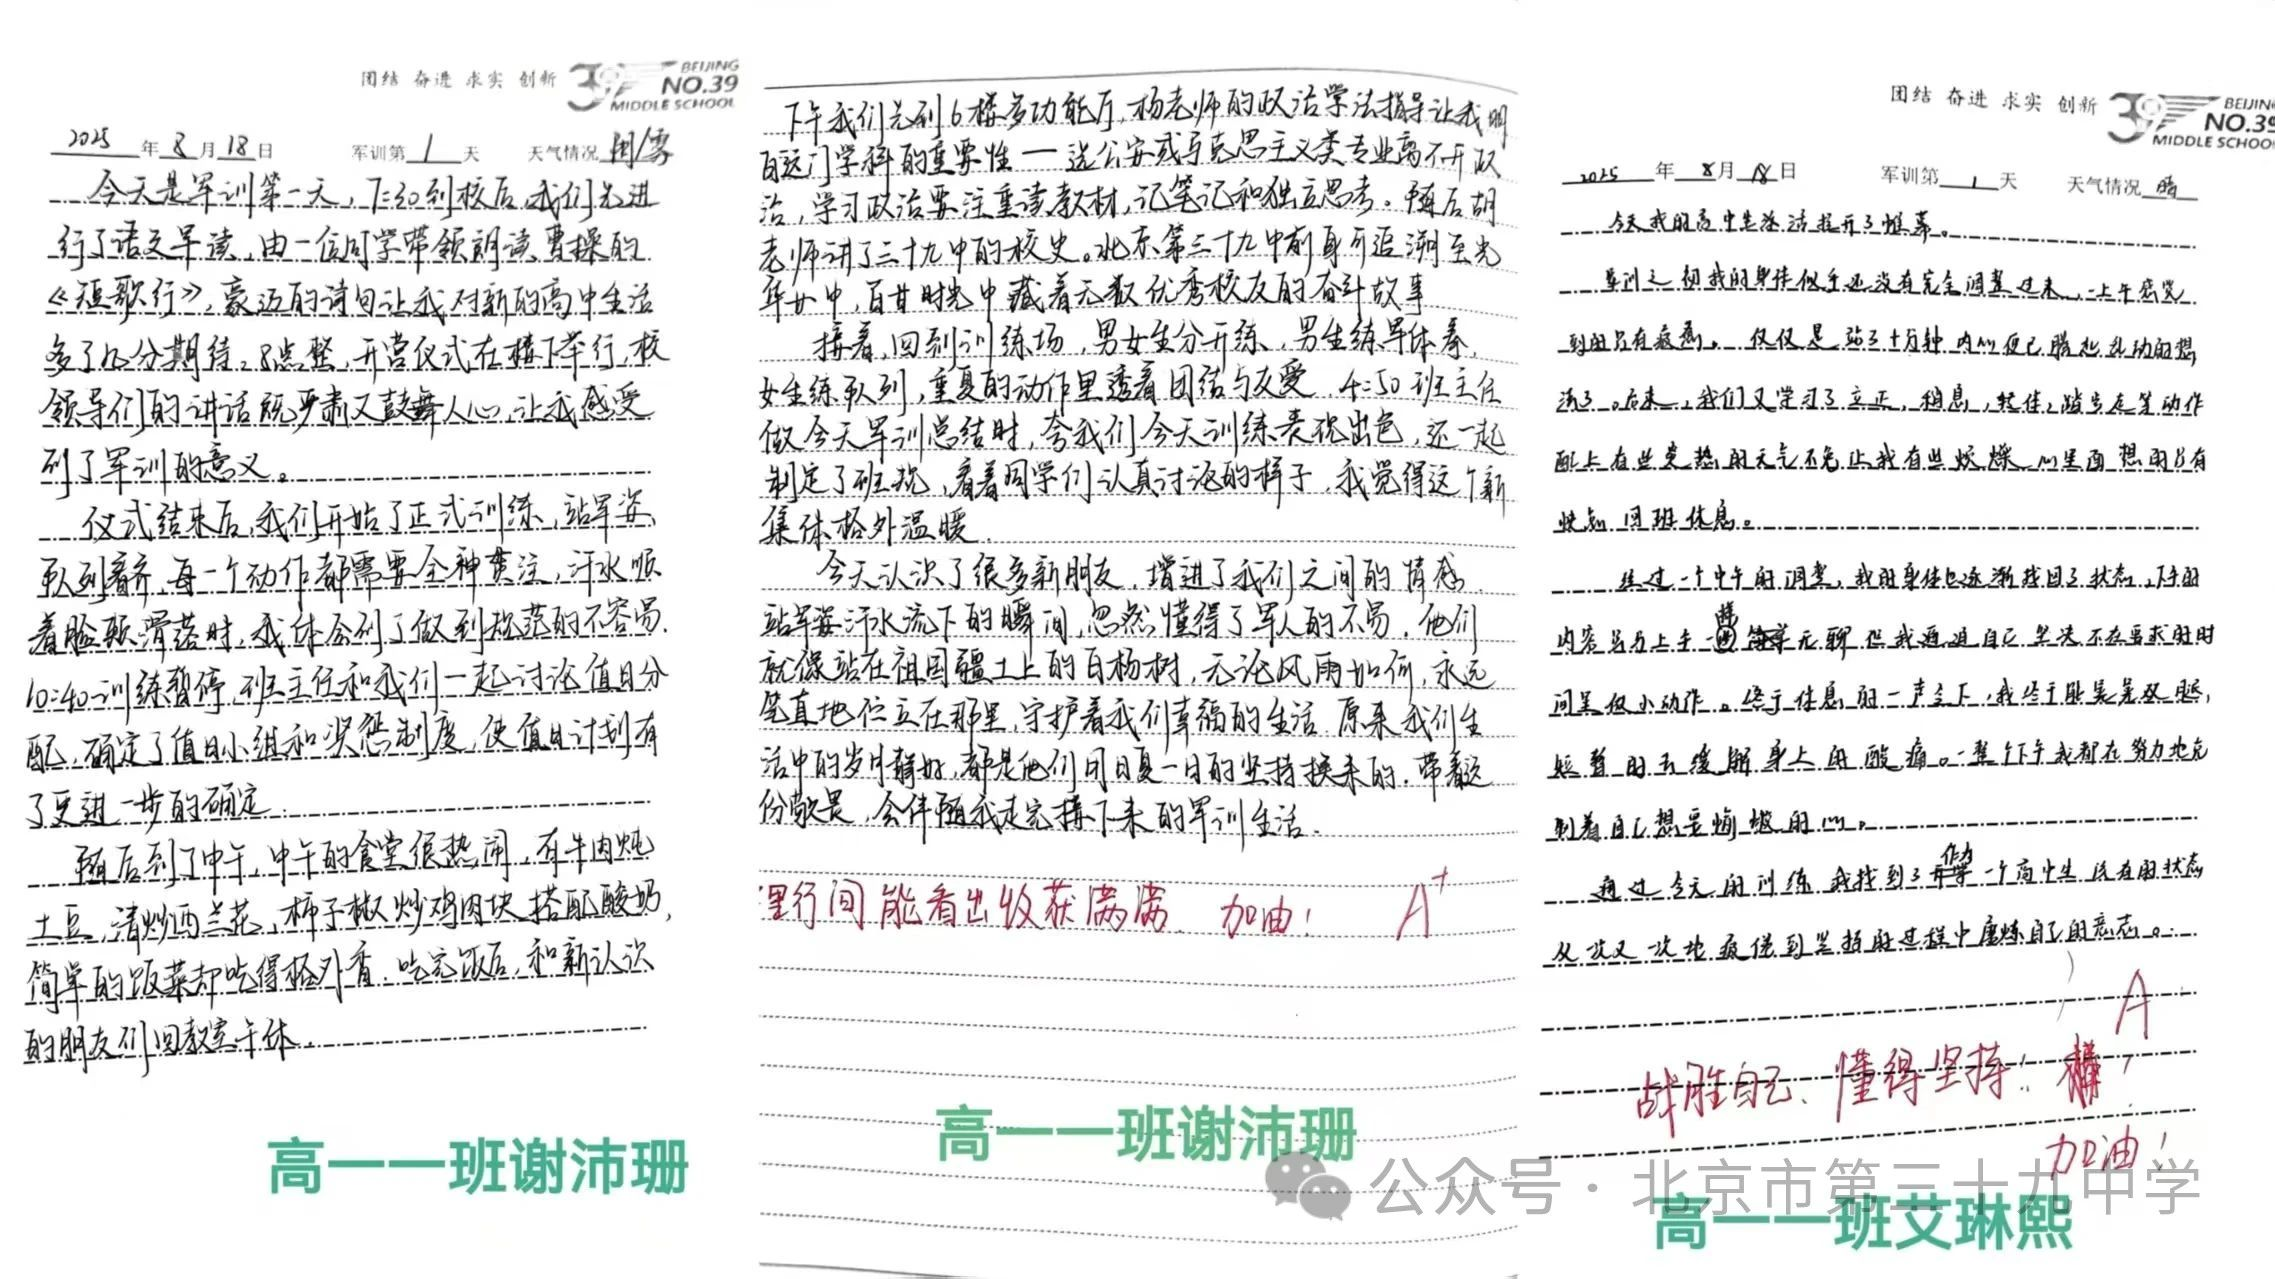 团结 奋进 求实 创新
39
BEIJING
NO.39
MIDDLE SCHOOL
2025年8月18日 军训第1天 天气情况
今天是军训第一天，7:30到校后，我们先进
行了语文早读，由一位同学带领朗读曹操的
《短歌行》，豪迈的诗句让我对新的高中生活
多了几分期待。8点整，开营仪式在楼下举行，校
领导们的讲话既严肃又鼓舞人心，让我感受
到了军训的意义。
仪式结束后，我们开始了正式训练，站军姿、
队列看齐，每一个动作都需要全神贯注，汗水顺
着脸颊滑落时，我体会到了做到规范的不容易.
10:40训练暂停，班主任和我们一起讨论值日分
配，确定了值日小组和奖惩制度，使值日计划有
了更进一步的确定.
随后到了中午，中午的食堂很热闹，有牛肉炖
土豆，清炒西兰花，柿子椒炒鸡肉块搭配酸奶，
简单的饭菜却吃得格外香.吃完饭后，和新认识
的朋友们回教室午休.
高一一班谢沛珊
下午我们先到6楼多功能厅，杨老师的政治学法指导让我明
白这门学科的重要性—选公安或马克思主义类专业离不开政
治，学习政治要注重读教材，记笔记和独立思考。随后胡
老师讲了三十九中的校史。北京第三十九中前身可追溯至光
华女中，百廿时光中藏着无数优秀校友的奋斗故事
接着，回到训练场，男女生分开练，男生练军体拳，
女生练队列，重复的动作里透着团结与友爱.4:50班主任
做今天军训总结时，夸我们今天训练表现出色，还一起
制定了班规，看着同学们认真讨论的样子，我觉得这个新
集体格外温暖.
今天认识了很多新朋友，增进了我们之间的情感.
站军姿汗水流下的瞬间，忽然懂得了军人的不易，他们
就像站在祖国疆土上的白杨树，无论风雨如何，永远
笔直地伫立在那里，守护着我们幸福的生活.原来我们生
活中的岁月静好，都是他们日复一日的坚持换来的.带着这
份敬畏，会伴随我走完接下来的军训生活.
里行间能看出收获满满 加油！ A+
高一一班谢沛珊
团结 奋进 求实 创新
39
BEIJING
NO.39
MIDDLE SCHOOL
2025年8月18日 军训第1天 天气情况 晴
今天我的高中生活拉开了帷幕。
军训之初我的身体似乎还没有完全调整过来，一上午感觉
到的只有疲惫。仅仅是站了十分钟内心便已腾起乱动的想
法了。后来，我们又学习了立正，稍息，蹲下，踏步走等动作
配上有些炎热的天气不免让我有些烦燥心里面想的只有
快点回班休息。
经过一个中午的调整，我的身体也逐渐找回了状态，下午的
内容与上午一样无聊但我通过自己坚决不在要求的时
间里做小动作。终于休息的一声令下，我终于能晃晃双腿，
短暂的去缓解身上的酸痛。一整个下午我都在努力地克
制着自己想要懈怠的心。
通过今天的训练我找到了作为一个高中生该有的状态
从一次又一次地疲倦到坚持的过程中磨炼自己的意志。
A
战胜自己、懂得坚持！棒！
加油！
公众号·北京市第三十九中学
高一一班艾琳熙